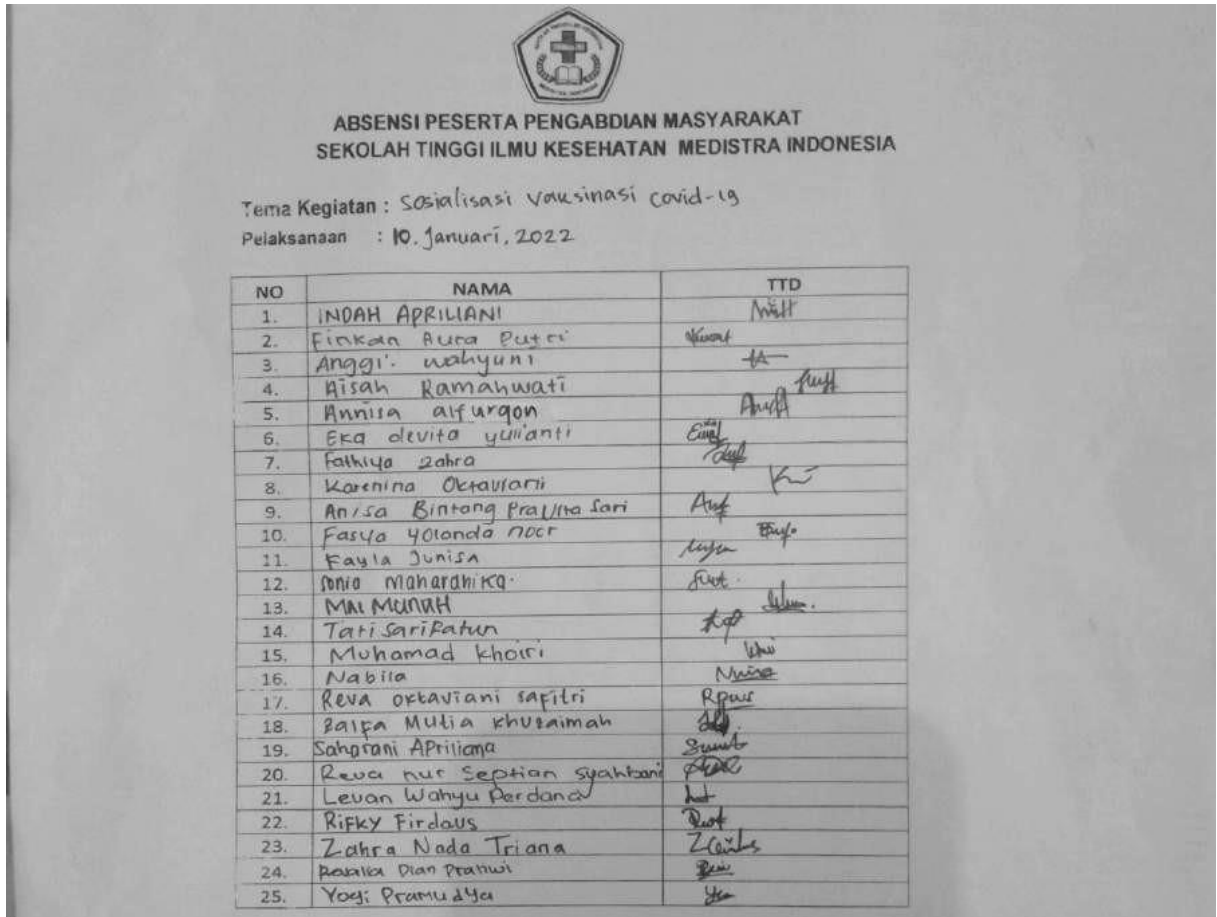 ABSENSI PESERTA PENGABDIAN MASYARAKAT
SEKOLAH TINGGI ILMU KESEHATAN MEDISTRA INDONESIA
Tema Kegiatan : Sosialisasi Vaksinasi Covid-19
Pelaksanaan : 10. Januari, 2022
NO NAMA TTD
1. INDAH APRILIANI
2. Finkan Aura Putri
3. Anggi. wahyuni
4. Aisah Ramahwati
5. Annisa alfurqon
6. Eka devita yulianti
7. Fathiya zahra
8. Karenina Oktaviani
9. Anisa Bintang Sari
10. Fasya yolanda noer
11. Kayla Junisa
12. Sonia Mahardhika.
13. MAIMUNAH
14. Tati Sarifatun
15. Muhamad khoiri
16. Nabila
17. Reva oktaviani safitri
18. Zalfa Mutia khuzaimah
19. Saharani Apriliana
20. Reva nur Septian syahbani
21. Levan Wahyu Perdana
22. Rifky Firdaus
23. Zahra Nada Triana
24. Dian Pratiwi
25. Yogi Pramudya